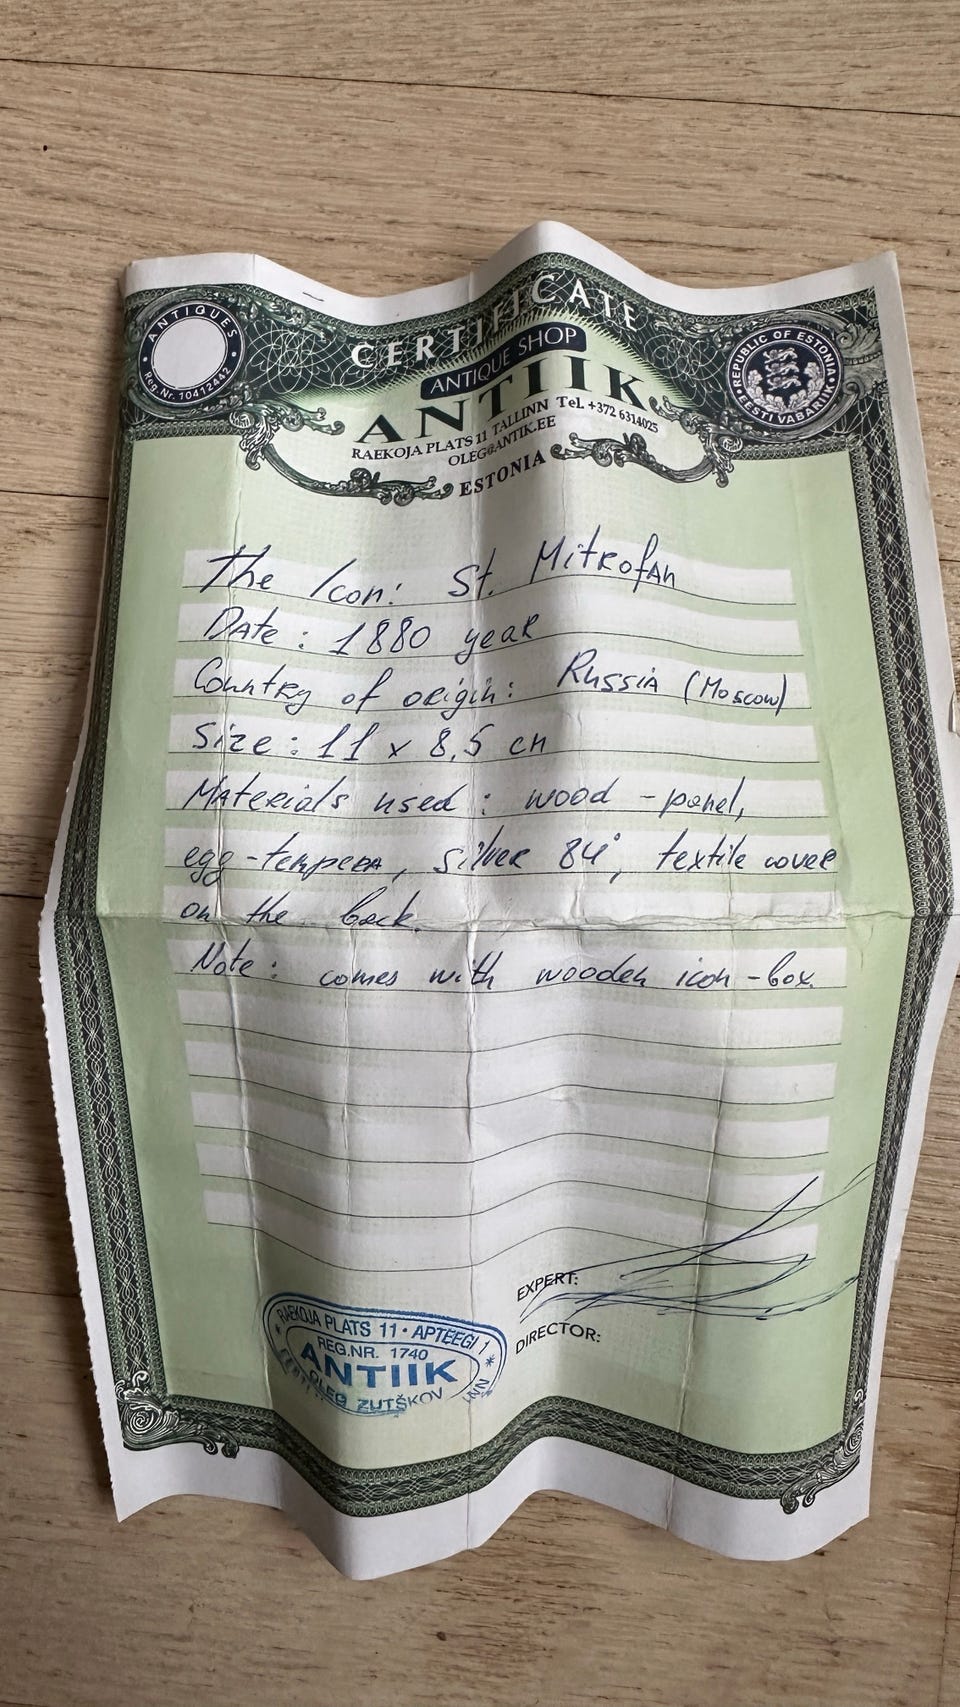 CERTIFICATE
ANTIQUES
Reg.Nr. 10412442
ANTIQUE SHOP
REPUBLIC OF ESTONIA
EESTI VABARIIK
ANTIIK
RAEKOJA PLATS 11 TALLINN Tel. +372 6314025
OLEG@ANTIK.EE
ESTONIA
The Icon: St. Mitrofan
Date: 1880 year
Country of origin: Russia (Moscow)
Size: 11 x 8,5 cm
Materials used: wood-panel,
egg-tempera, silver 84°, textile cover
on the back.
Note: comes with wooden icon-box.
EXPERT:
DIRECTOR:
RAEKOJA PLATS 11 · APTEEGI 1
REG.NR. 1740
ANTIIK
OLEG ZUTŠKOV